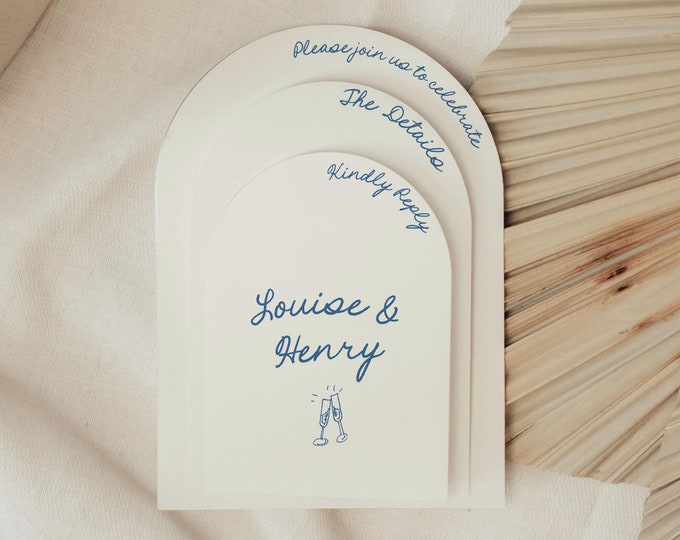 Please join us to celebrate
The Details
Kindly Reply
Louise &
Henry